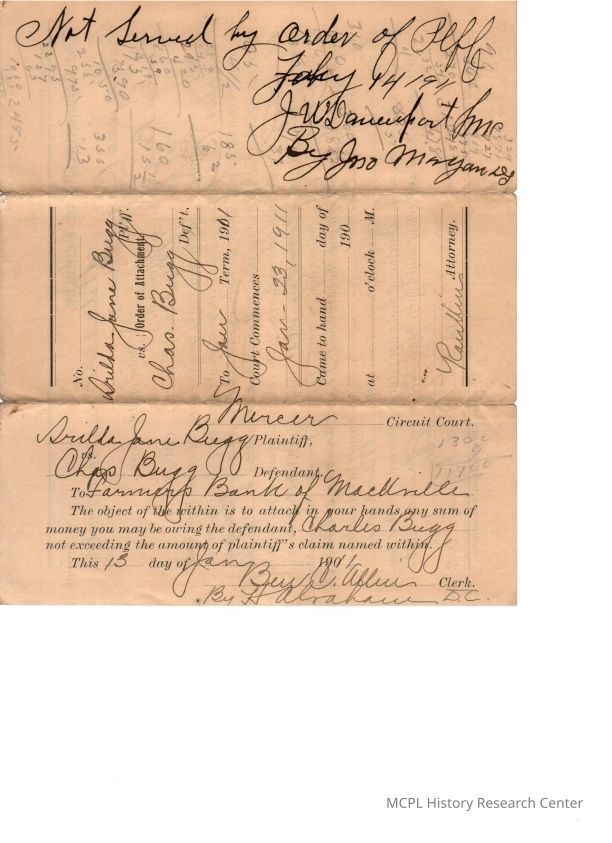 Not Served by order of Plff
Feby 14 1911
J W Davenport
By Jno Morgan DS
No.
Arilda Jane Bugg Pl'ff.
vs. Order of Attachment.
Chas. Bugg Def't.
To Jan Term, 1901
Court Commences
Jan - 23, 1911
Came to hand day of
190
at o'clock M.
Attorney.
Mercer Circuit Court.
Arilda Jane Bugg Plaintiff,
vs.
Chas Bugg Defendant.
To Farmers Bank of Mackville
The object of the within is to attach in your hands any sum of
money you may be owing the defendant, Charles Bugg
not exceeding the amount of plaintiff's claim named within.
This 13 day of Jan 190
Ben C. Allin Clerk.
By Abraham D.C.
MCPL History Research Center